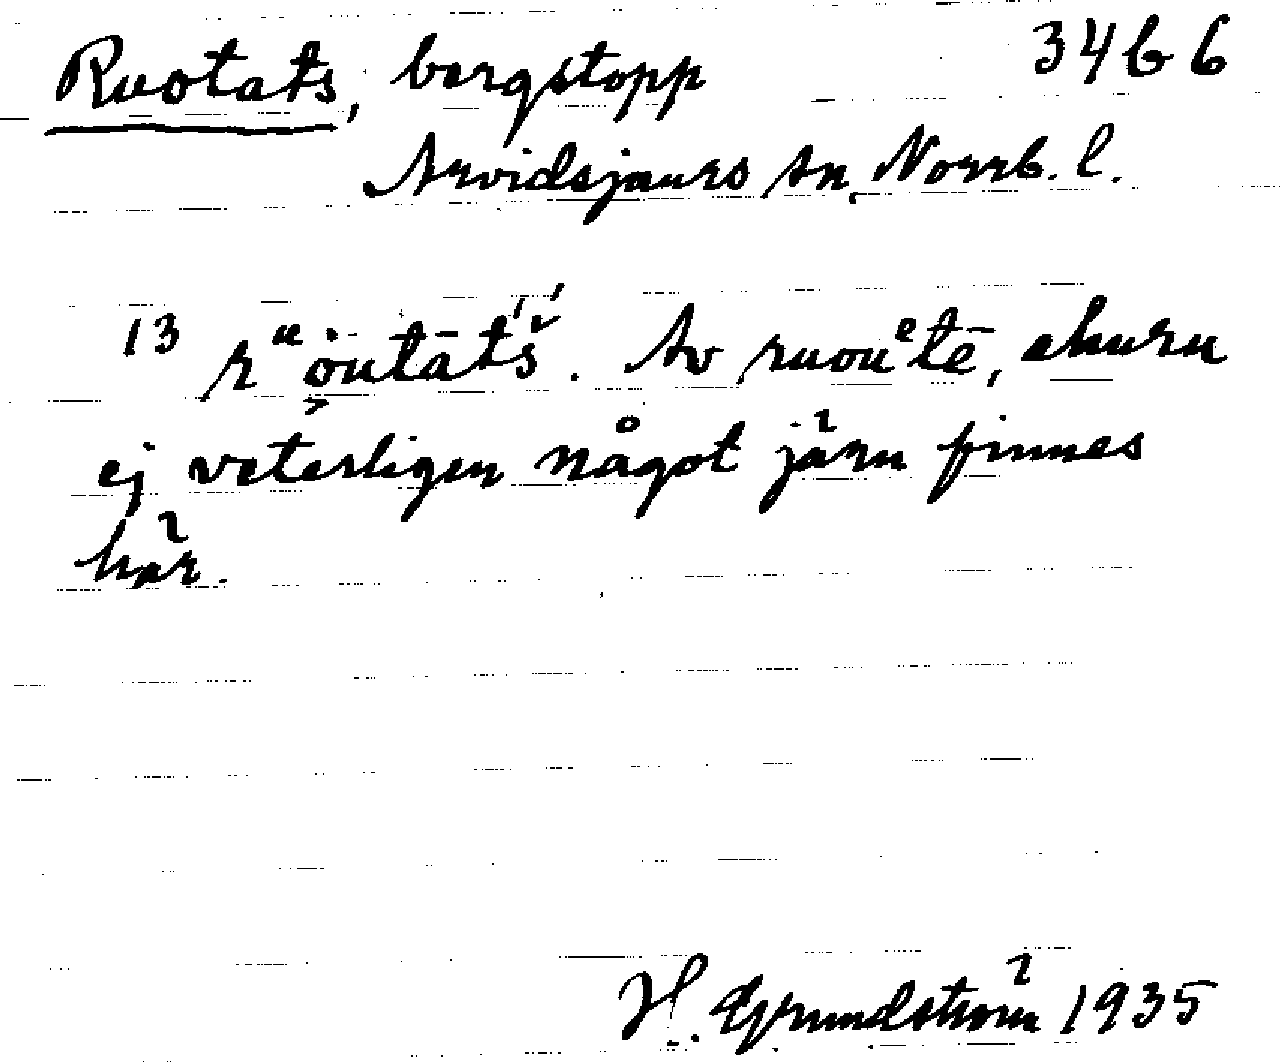 Ruotats, bergstopp 3466
Arvidsjaurs sn, Norrb. l.
13 . Av , ehuru
ej veterligen något järn finnes
här.
H. Grundström 1935